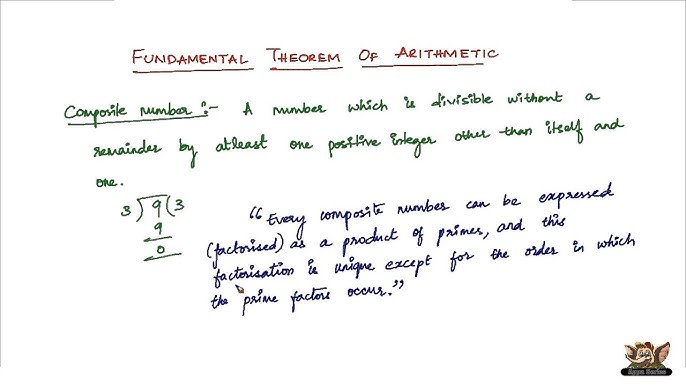 FUNDAMENTAL THEOREM OF ARITHMETIC
Composite number :- A number which is divisible without a
remainder by atleast one positive integer other than itself and
one.
3 ) 9 ( 3
9
0
"Every composite number can be expressed
(factorised) as a product of primes, and this
factorisation is unique except for the order in which
the prime factors occur."
Appu Series